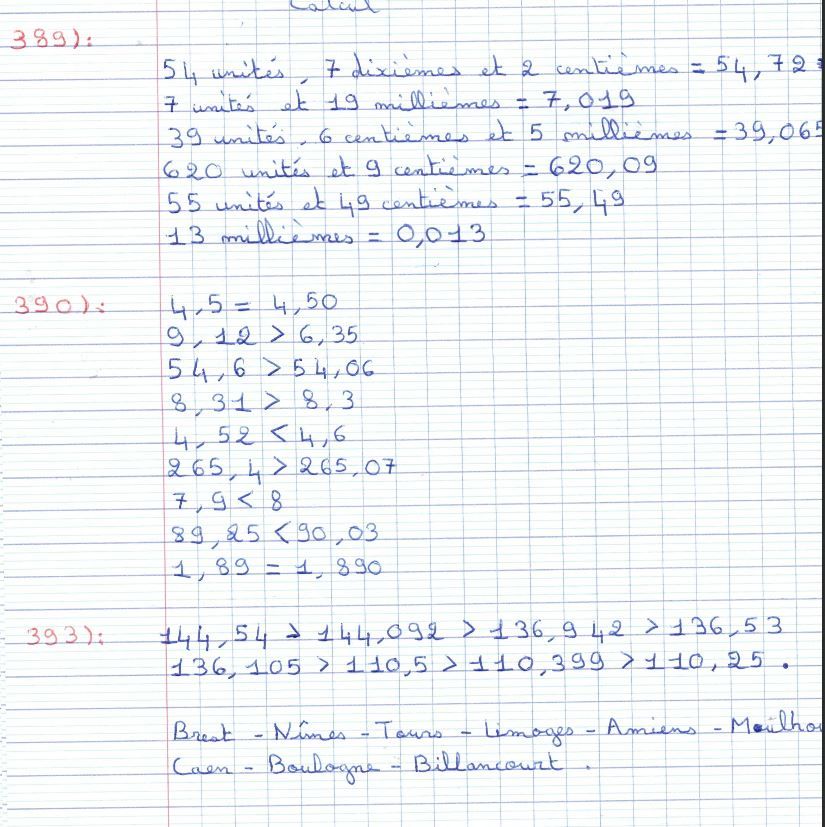 Calcul
389):
54 unités, 7 dixièmes et 2 centièmes = 54,72
7 unités et 19 millièmes = 7,019
39 unités, 6 centièmes et 5 millièmes = 39,065
620 unités et 9 centièmes = 620,09
55 unités et 49 centièmes = 55,49
13 millièmes = 0,013
390):
4,5 = 4,50
9,12 > 6,35
54,6 > 54,06
8,31 > 8,3
4,52 < 4,6
265,4 > 265,07
7,9 < 8
89,25 < 90,03
1,89 = 1,890
393):
144,54 > 144,092 > 136,942 > 136,53
136,105 > 110,5 > 110,399 > 110,25.
Brest - Nîmes - Tours - Limoges - Amiens - Mulhou
Caen - Boulogne - Billancourt.